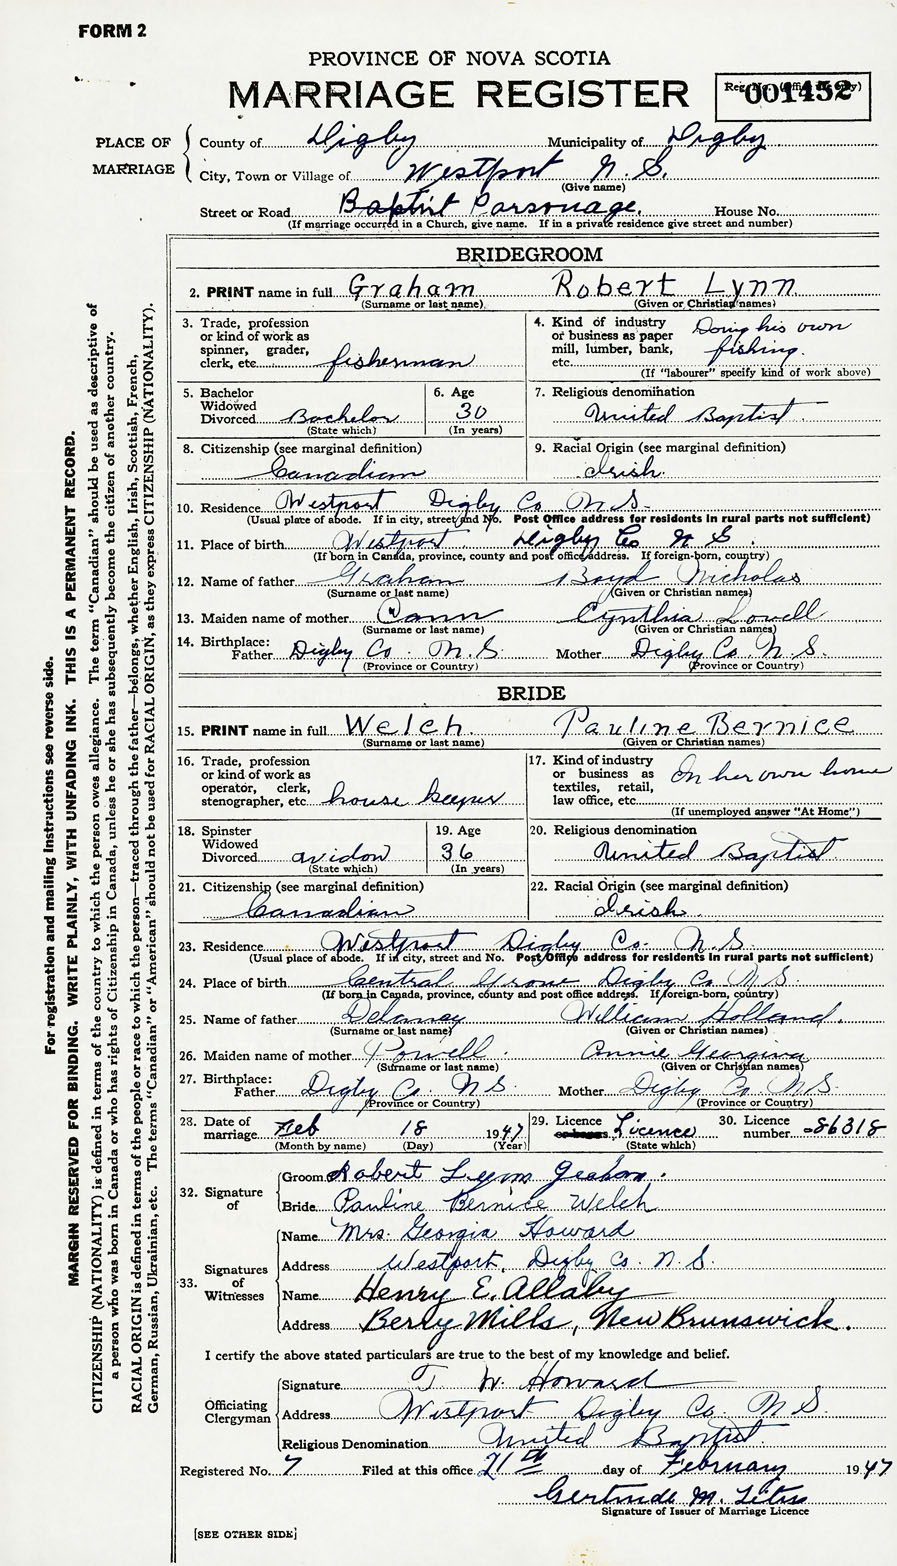 FORM 2
PROVINCE OF NOVA SCOTIA
MARRIAGE REGISTER
Reg. No. (Office use only)
001452
PLACE OF MARRIAGE
County of Digby Municipality of Digby
City, Town or Village of Westport N.S.
(Give name)
Street or Road Baptist Parsonage. House No.
(If marriage occurred in a Church, give name. If in a private residence give street and number)
BRIDEGROOM
2. PRINT name in full Graham Robert Lynn
(Surname or last name) (Given or Christian names)
3. Trade, profession or kind of work as spinner, grader, clerk, etc. fisherman
4. Kind of industry or business as paper mill, lumber, bank, etc. Doing his own fishing.
(If "labourer" specify kind of work above)
5. Bachelor Widowed Divorced Bachelor
(State which)
6. Age 30
(In years)
7. Religious denomination
United Baptist
8. Citizenship (see marginal definition)
Canadian
9. Racial Origin (see marginal definition)
Irish.
10. Residence Westport Digby Co N S.
(Usual place of abode. If in city, street and No. Post Office address for residents in rural parts not sufficient)
11. Place of birth Westport. Digby Co N S.
(If born in Canada, province, county and post office address. If foreign-born, country)
12. Name of father Graham Boyd Nicholas
(Surname or last name) (Given or Christian names)
13. Maiden name of mother Cann Cynthia Lovell
(Surname or last name) (Given or Christian names)
14. Birthplace:
Father Digby Co. N.S Mother Digby Co. N.S.
(Province or Country) (Province or Country)
BRIDE
15. PRINT name in full Welch. Pauline Bernice
(Surname or last name) (Given or Christian names)
16. Trade, profession or kind of work as operator, clerk, stenographer, etc. house keeper
17. Kind of industry or business as textiles, retail, law office, etc. In her own home
(If unemployed answer "At Home")
18. Spinster Widowed Divorced widow
(State which)
19. Age 36
(In years)
20. Religious denomination
United Baptist.
21. Citizenship (see marginal definition)
Canadian
22. Racial Origin (see marginal definition)
Irish.
23. Residence Westport Digby Co. N.S.
(Usual place of abode. If in city, street and No. Post Office address for residents in rural parts not sufficient)
24. Place of birth Central Grove Digby Co N S.
(If born in Canada, province, county and post office address. If foreign-born, country)
25. Name of father Delaney William Holland.
(Surname or last name) (Given or Christian names)
26. Maiden name of mother Powell. Annie Georgina
(Surname or last name) (Given or Christian names)
27. Birthplace:
Father Digby Co. N S. Mother Digby Co N.S.
(Province or Country) (Province or Country)
28. Date of marriage Feb 18 1947
(Month by name) (Day) (Year)
29. Licence or banns Licence
(State which)
30. Licence number 86318
32. Signature of
Groom Robert Lynn Graham.
Bride Pauline Bernice Welch
33. Signatures of Witnesses
Name Mrs. Georgia Howard
Address Westport, Digby Co. N.S.
Name Henry E. Allaby
Address Berry Mills, New Brunswick.
I certify the above stated particulars are true to the best of my knowledge and belief.
Officiating Clergyman
Signature T. W. Howard
Address Westport Digby Co. N S.
Religious Denomination United Baptist.
Registered No. 7 Filed at this office 21th day of February 1947
Gertrude M. Titus
Signature of Issuer of Marriage Licence
[SEE OTHER SIDE]
For registration and mailing instructions see reverse side.
MARGIN RESERVED FOR BINDING. WRITE PLAINLY, WITH UNFADING INK. THIS IS A PERMANENT RECORD.
CITIZENSHIP (NATIONALITY) is defined in terms of the country to which the person owes allegiance. The term "Canadian" should be used as descriptive of
a person who was born in Canada or who has rights of Citizenship in Canada, unless he or she has subsequently become the citizen of another country.
RACIAL ORIGIN is defined in terms of the people or race to which the person—traced through the father—belongs, whether English, Irish, Scottish, French,
German, Russian, Ukrainian, etc. The terms "Canadian" or "American" should not be used for RACIAL ORIGIN, as they express CITIZENSHIP (NATIONALITY).